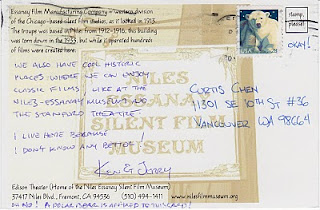 Essanay Film Manufacturing Company's western division
of the Chicago-based silent film studio, as it looked in 1913.
The troupe was based in Niles from 1912-1916, this building
was torn down in the 1933, but while it operated hundreds
of films were created here.
stamp,
please!
OKAY!
WE ALSO HAVE COOL HISTORIC
PLACES WHERE WE CAN ENJOY
CLASSIC FILMS, LIKE AT THE
NILES-ESSANAY MUSEUM OR
THE STANFORD THEATRE.
I LIVE HERE BECAUSE
I DON'T KNOW ANY BETTER!
Ken & Jerry
CURTIS CHEN
11301 SE 10TH ST #36
VANCOUVER WA 98664
NILES
ESSANAY
SILENT FILM
MUSEUM
Edison Theater (Home of the Niles Essanay Silent Film Museum)
37417 Niles Blvd., Fremont, CA 94536 (510) 494-1411 www.nilesfilmmuseum.org
OH NO! A POLAR BEAR IS AFFIXED TO THIS CARD!